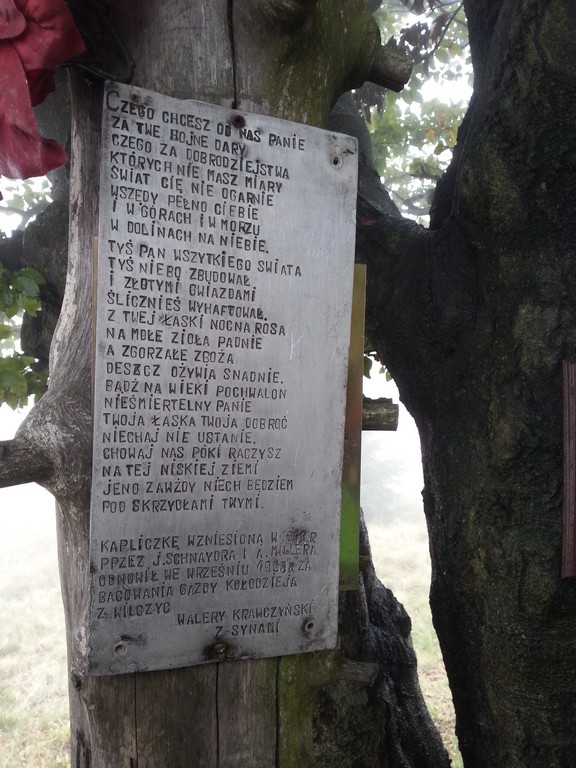 CZEGO CHCESZ OD NAS PANIE
ZA TWE HOJNE DARY
CZEGO ZA DOBRODZIEJSTWA
KTÓRYCH NIE MASZ MIARY
ŚWIAT CIĘ NIE OGARNIE
WSZĘDY PEŁNO CIEBIE
I W GÓRACH I W MORZU
W DOLINACH NA NIEBIE.
TYŚ PAN WSZYTKIEGO ŚWIATA
TYŚ NIEBO ZBUDOWAŁ
I ZŁOTYMI GWIAZDAMI
ŚLICZNIEŚ WYHAFTOWAŁ.
Z TWEJ ŁASKI NOCNA ROSA
NA MDŁE ZIOŁA PADNIE
A ZGORZAŁE ZBOŻA
DESZCZ OŻYWIA SNADNIE.
BĄDŹ NA WIEKI POCHWALON
NIEŚMIERTELNY PANIE
TWOJA ŁASKA TWOJA DOBROĆ
NIECHAJ NIE USTANIE.
CHOWAJ NAS PÓKI RACZYSZ
NA TEJ NISKIEJ ZIEMI
JENO ZAWŻDY NIECH BĘDZIEM
POD SKRZYDŁAMI TWYMI.
KAPLICZKĘ WZNIESIONĄ W
PPZEZ J. SCHNAYDRA I A. MILLERA
ODNOWIŁ WE WRZEŚNIU ZA
BACOWANIA GAZDY KOŁODZIEJA
Z WILCZYC
WALERY KRAWCZYŃSKI
Z SYNAMI